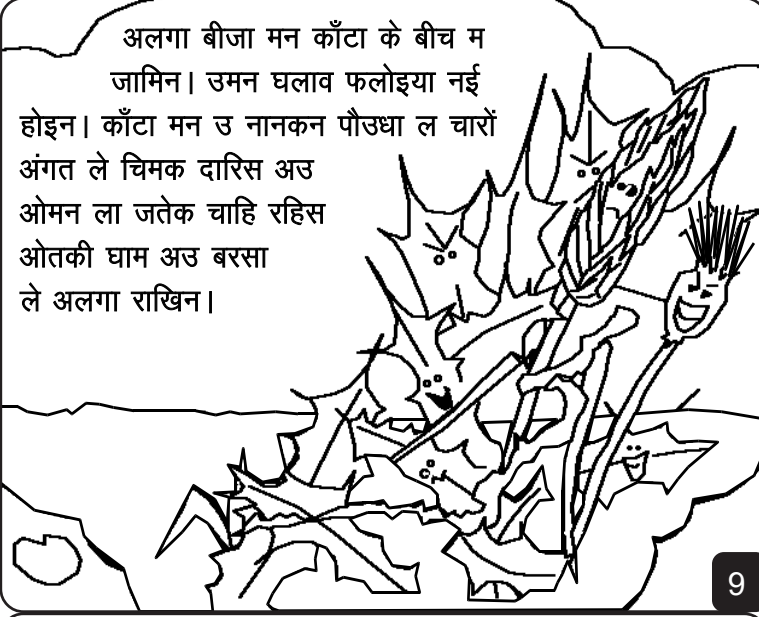 अलगा बीजा मन काँटा के बीच म
जामिन। उमन घलाव फलोइया नई
होइन। काँटा मन उ नानकन पौउधा ल चारों
अंगत ले चिमक दारिस अउ
ओमन ला जतेक चाहि रहिस
ओतकी घाम अउ बरसा
ले अलगा राखिन।
9